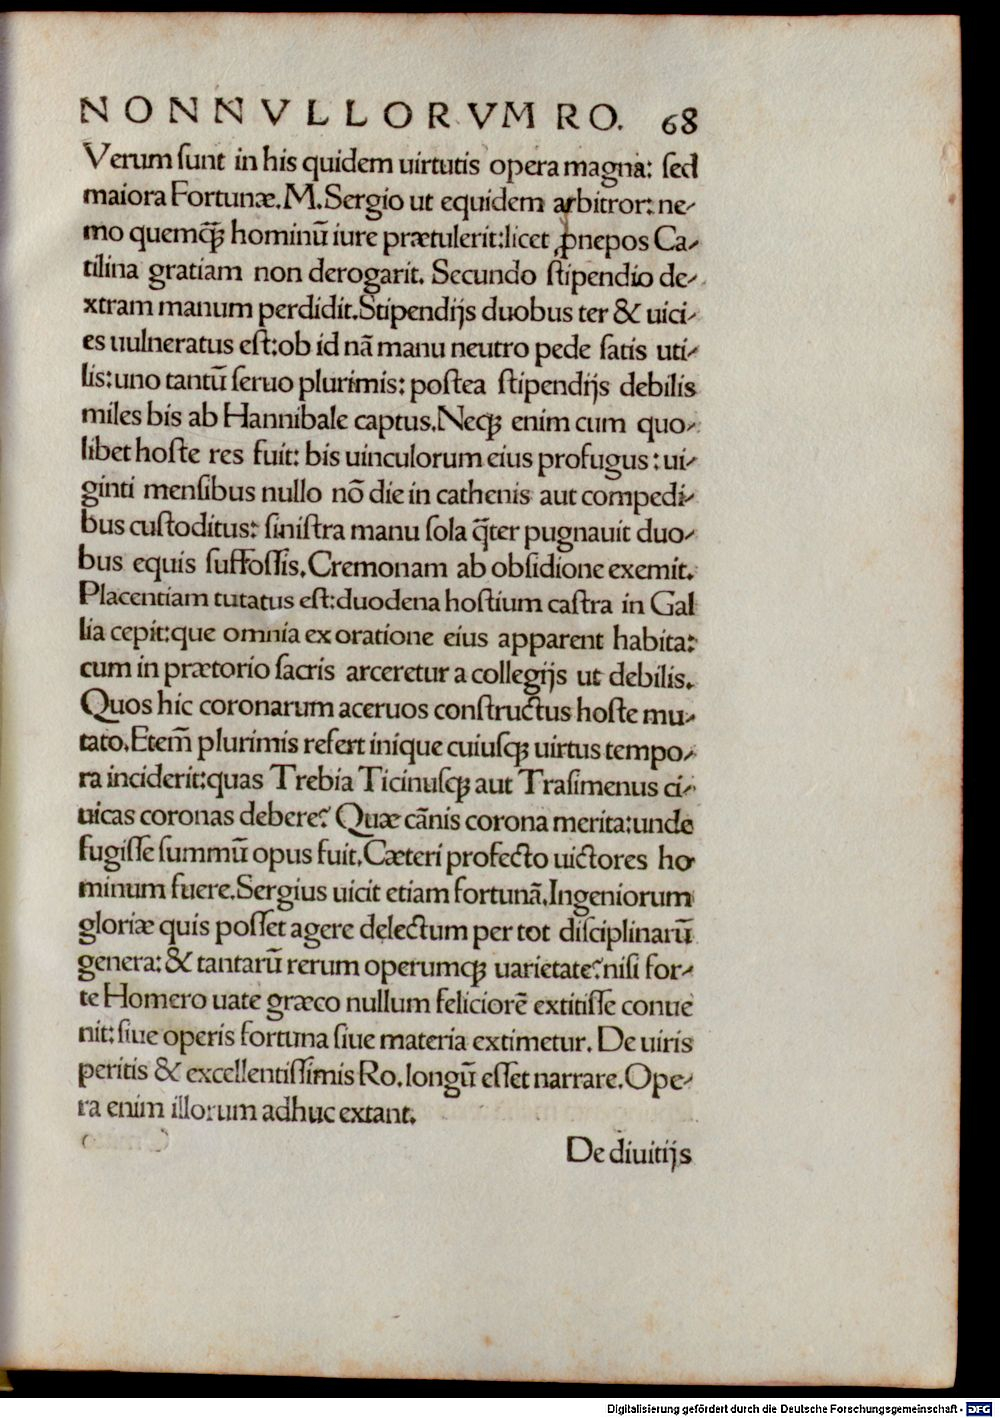 NONNVLLORVM RO. 68
Verum ſunt in his quidem uirtutis opera magna: ſed
maiora Fortunæ. M. Sergio ut equidem arbitror: ne-
mo quemqꝫ hominū iure prætulerit: licet ꝓnepos Ca-
tilina gratiam non derogarit. Secundo ſtipendio de-
xtram manum perdidit. Stipendijs duobus ter & uici-
es uulneratus eſt: ob id nā manu neutro pede ſatis uti-
lis: uno tantū ſeruo plurimis: poſtea ſtipendijs debilis
miles bis ab Hannibale captus. Neqꝫ enim cum quo-
libet hoſte res fuit: bis uinculorum eius profugus: ui-
ginti menſibus nullo nō die in cathenis aut compedi-
bus cuſtoditus: ſiniſtra manu ſola q̄ter pugnauit duo-
bus equis ſuffoſſis. Cremonam ab obſidione exemit.
Placentiam tutatus eſt: duodena hoſtium caſtra in Gal
lia cepit: que omnia ex oratione eius apparent habita:
cum in prætorio ſacris arceretur a collegijs ut debilis.
Quos hic coronarum aceruos conſtructus hoſte mu-
tato. Etem̄ plurimis refert inique cuiuſqꝫ uirtus tempo-
ra inciderit: quas Trebia Ticinuſqꝫ aut Traſimenus ci-
uicas coronas debere? Quæ cānis corona merita: unde
fugiſſe ſummū opus fuit. Cæteri profecto uictores ho
minum fuere. Sergius uicit etiam fortunā. Ingeniorum
gloriæ quis poſſet agere delectum per tot diſciplinarū
genera: & tantarū rerum operumqꝫ uarietate? niſi for-
te Homero uate græco nullum feliciorē extitiſſe conue
nit: ſiue operis fortuna ſiue materia extimetur. De uiris
peritis & excellentiſſimis Ro. longū eſſet narrare. Ope-
ra enim illorum adhuc extant.
De diuitijs
Digitalisierung gefördert durch die Deutsche Forschungsgemeinschaft - DFG